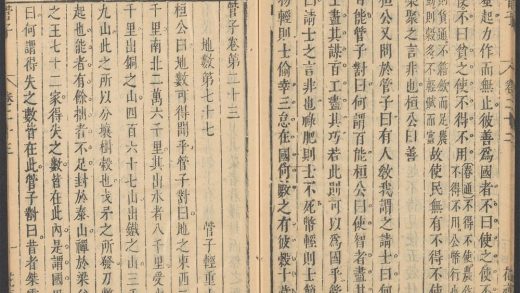 壅起力作而無止彼善爲國者不曰使之使不
使不曰貧之使不得不用
故使民無有不得不使
桀聚之言非也桓公曰善
桓公又問於管子曰有人敎我謂之請士曰何
百能管子對曰何謂百能桓公曰使智者盡其
士盡其謀百工盡其巧若此則可以爲國乎
曰請士之言非也祿肥則士不死幣輕則士簡
物輕則士偷幸三怠在國何數之有彼穀十
卷二十三
管子卷第二十三
管子輕重
地數第七十七
桓公曰地數可得聞乎管子對曰地之東西
千里南北二萬六千里其出水者八千里受
千里出銅之山四百六十七山出鐵之山三千
九山此之所以分壤樹穀也戈矛之所發刀幣
起也能者有餘拙者不足封於泰山禪於梁父
之王七十二家得失之數皆在此內是謂國
曰何謂得失之數皆在此管子對曰昔者桀
管子
卷二十三
一